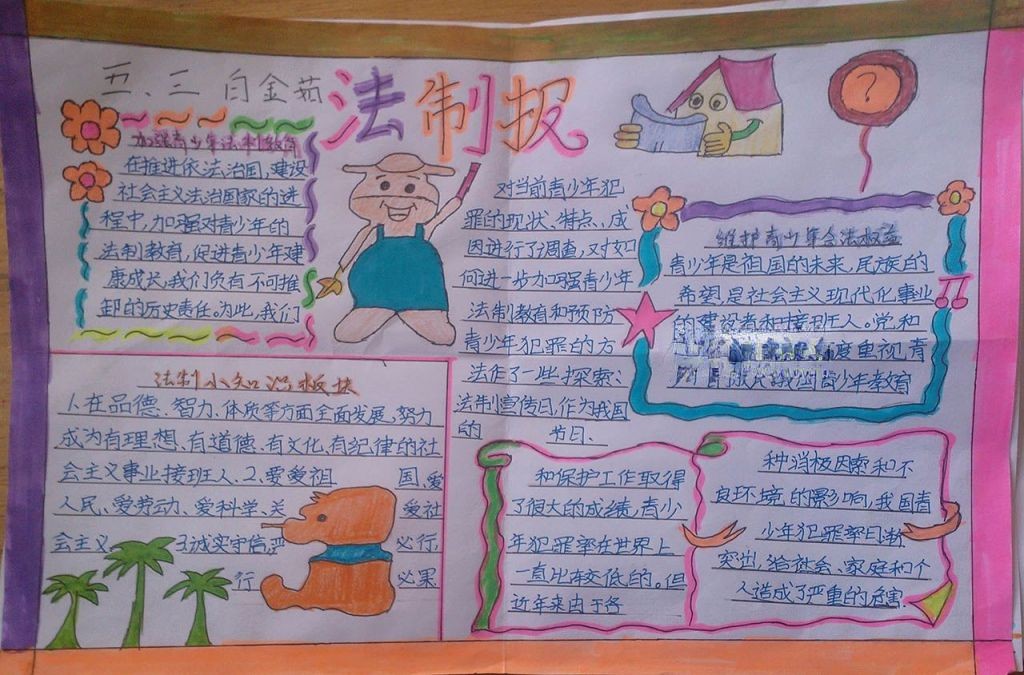 五、三 白金茹
法制报
加强青少年法制教育
在推进依法治国,建设
社会主义法治国家的进
程中,加强对青少年的
法制教育,促进青少年建
康成长,我们负有不可推
卸的历史责任。为此,我们
对当前青少年犯
罪的现状、特点、成
因进行了调查,对如
何进一步加强青少年
法制教育和预防
青少年犯罪的方
法作了一些探索、
法制宣传日,作为我国
的 节日、
维护青少年合法权益
青少年是祖国的未来,民族的
希望,是社会主义现代化事业
的建设者和接班人。党和
度重视青
少年教育
法制小知识板块
1、在品德、智力、体质等方面全面发展,努力
成为有理想、有道德、有文化、有纪律的社
会主义事业接班人、2、要爱祖 国、爱
人民、爱劳动、爱科学、关 爱社
会主义 3、诚实守信,严 必行,
行 必果
和保护工作取得
了很大的成绩,青少
年犯罪率在世界上
一直比较低的。但
近年来由于各
种消极因素和不
良环境的影响,我国青
少年犯罪率日渐
突出,给社会、家庭和个
人造成了严重的危害